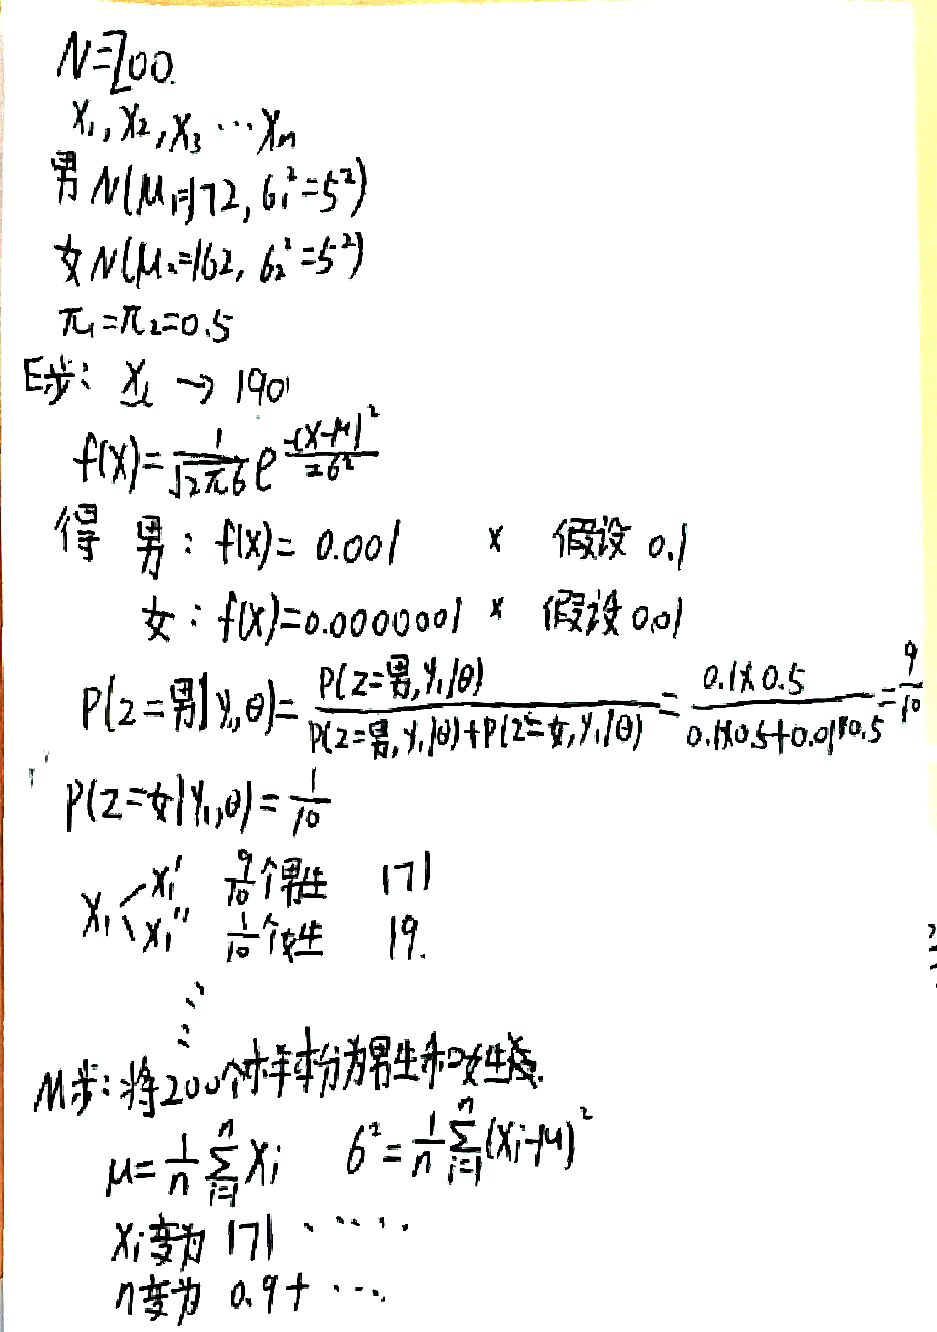 N=200.
X₁,X₂,X₃ ⋯ Xₙ
男 N(μ₁=172, σ₁²=5²)
女 N(μ₂=162, σ₂²=5²)
π₁=π₂=0.5
E步: X₁ → 190
f(x)=1/(√2π σ) e^(-(x-μ)²/2σ²)
得 男: f(x)= 0.001 × 假设 0.1
女: f(x)=0.0000001 × 假设 0.01
P(z=男|y₁,θ)= P(z=男,y₁|θ)/(P(z=男,y₁|θ)+P(z=女,y₁|θ)) = (0.1×0.5)/(0.1×0.5+0.01×0.5) = 9/10
P(z=女|y₁,θ)= 1/10
X₁ X₁' 9/10个男生 171
X₁'' 1/10个女生 19.
⋮
M步: 将200个样本分为男生和女生
μ= 1/n Σᵢ₌₁ⁿ Xᵢ σ²= 1/n Σᵢ₌₁ⁿ (Xᵢ-μ)²
Xᵢ变为 171 ⋯⋯
n变为 0.9+ ⋯